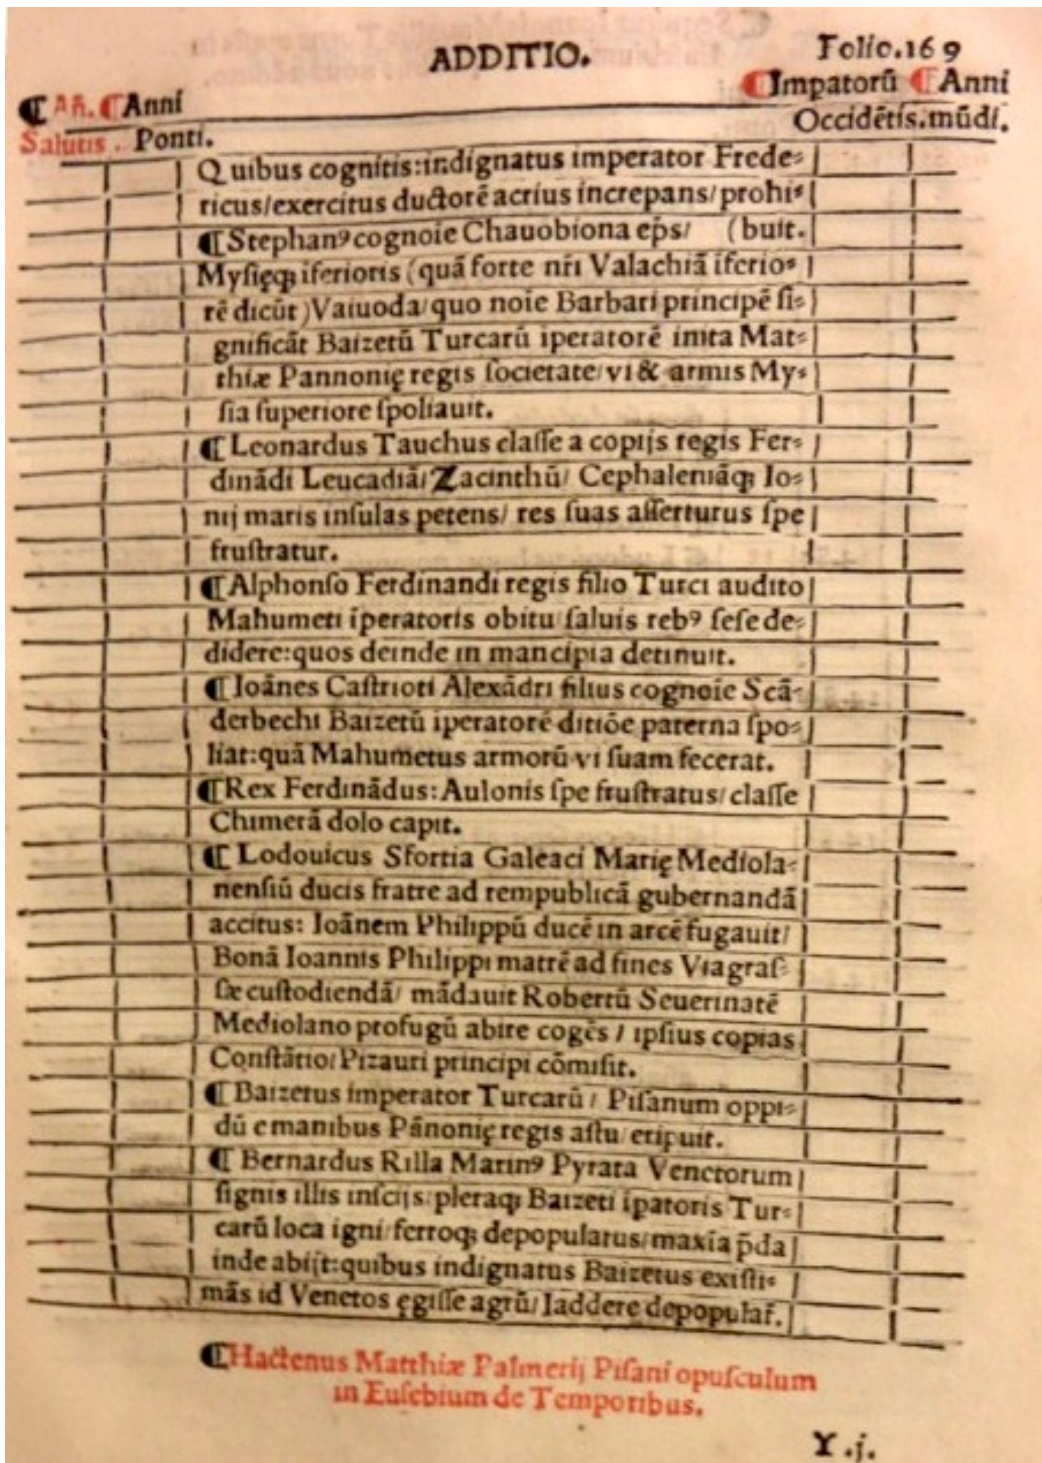 ADDITIO.
Folio.169
¶Impatorū ¶Anni
¶Añ. ¶Anni
Occidētis.mūdi.
Salutis. Ponti.
Quibus cognitis:indignatus imperator Frede⸗
ricus/exercitus ductorē acrius increpans/prohi⸗
¶Stephanꝰ cognoīe Chauobiona ep̄s/ (buit.
Mysięqꝫ īferioris (quā forte nr̄i Valachiā īferio⸗
rē dicūt)Vaiuoda/quo noīe Barbari principē si⸗
gnificāt Baizetū Turcarū īperatorē inita Mat⸗
thiæ Pannonię regis societate/vi & armis My⸗
sia superiore spoliauit.
¶Leonardus Tauchus classe a copijs regis Fer⸗
dinādi Leucadiā/Zacinthū/ Cephaleniāqꝫ Io⸗
nij maris insulas petens/ res suas asserturus spe
frustratur.
¶Alphonso Ferdinandi regis filio Turci audito
Mahumeti īperatoris obitu/saluis rebꝰ sese de⸗
didere:quos deinde in mancipia detinuit.
¶Ioānes Castrioti Alexādri filius cognoīe Scā⸗
derbechi Baizetū īperatorē ditiōe paterna spo⸗
liat:quā Mahumetus armorū vi suam fecerat.
¶Rex Ferdinādus:Aulonis spe frustratus/classe
Chimerā dolo capit.
¶Lodouicus Sfortia Galeaci Marię Mediola⸗
nensiū ducis fratre ad rempublicā gubernandā
accitus: Ioānem Philippū ducē in arcē fugauit/
Bonā Ioannis Philippi matrē ad fines Viagras⸗
sæ custodiendā/ mādauit Robertū Seuerinatē
Mediolano profugū abire cogēs / ipsius copias
Constātio/Pizauri principi cōmisit.
¶Baizetus imperator Turcarū / Pisanum oppi⸗
dū e manibus Pānonię regis astu/eripuit.
¶Bernardus Rilla Marinꝰ Pyrata Venetorum
signis illis inscijs/pleraqꝫ Baizeti īpatoris Tur⸗
carū loca igni/ferroqꝫ depopulatus/maxīa p̄da
inde abijt:quibus indignatus Baizetus existi⸗
mās id Venetos ęgisse agrū/Iaddere depopular̄.
¶Hactenus Matthiæ Palmerij Pisani opusculum
in Eusebium de Temporibus.
Y.j.